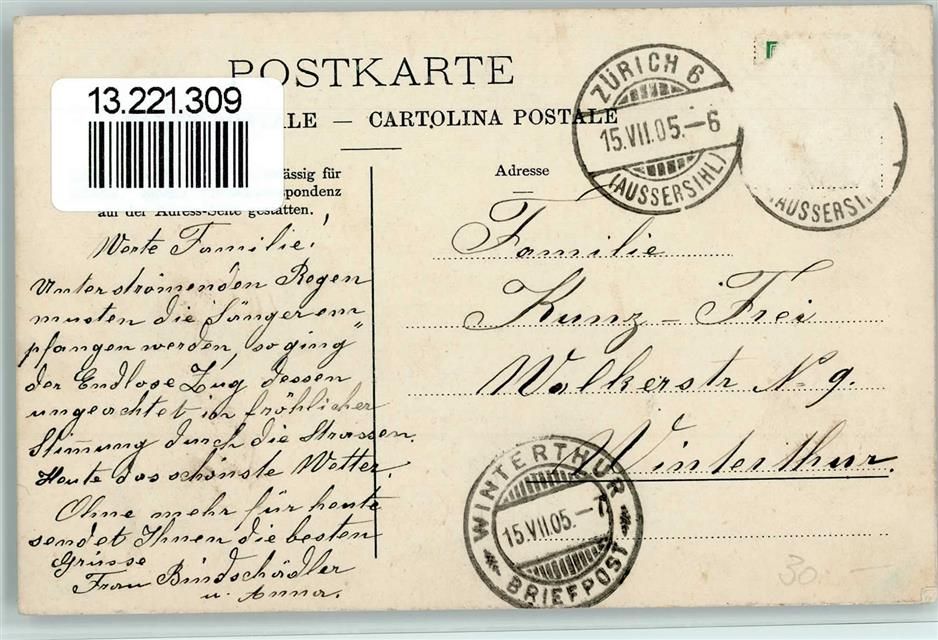 POSTKARTE
13.221.309
ALE — CARTOLINA POSTALE
ässig für
spondenz
auf der Adress-Seite gestatten.
Adresse
ZÜRICH 6
15.VII.05.–6
(AUSSERSIHL)
AUSSERSI
Werte Familie!
Unter strömenden Regen
mussten die Sänger em
pfangen werden, so ging
der Endlose Zug dessen
ungeachtet in fröhlicher
Stimmung durch die Strassen.
Heute das schönste Wetter.
Ohne mehr für heute
sendet Ihnen die besten
Grüsse
Frau Bindschädler
u. Anna.
Familie
Kunz-Frei
Walkerstr No 9.
Winterthur.
WINTERTHUR
15.VII.05.–
BRIEFPOST
30.–